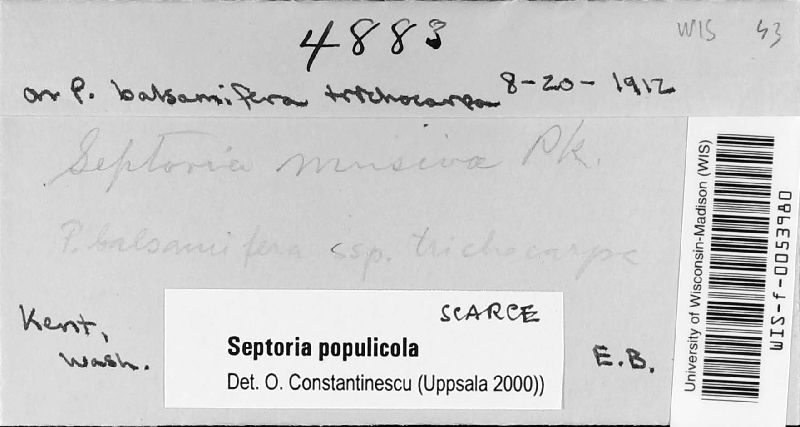 4883
WIS 43
on P. balsamifera trichocarpa 8-20-1912
Septoria musiva Pk.
P. balsamifera ssp. trichocarpa
Kent,
Wash.
SCARCE
Septoria populicola
Det. O. Constantinescu (Uppsala 2000))
E.B.
University of Wisconsin-Madison (WIS)
WIS-f-0053980